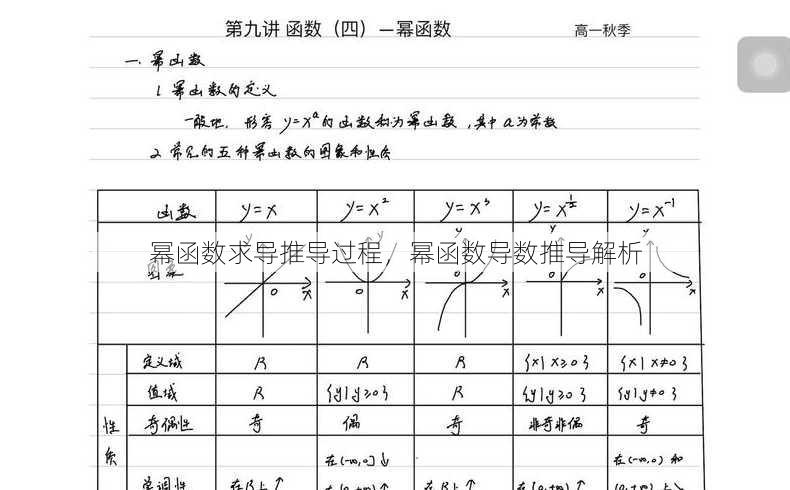 第九讲 函数（四）—幂函数
高一秋季
一. 幂函数
1. 幂函数的定义
一般地, 形容 y=x^a 的函数称为幂函数, 其中 a 为常数
2. 常见的五种幂函数的图象和性质
函数 y=x y=x² y=x³ y=x^½ y=x⁻¹
幂函数求导推导过程，幂函数导数推导解析
图象
定义域 R R R {x|x≥0} {x|x≠0}
值域 R {y|y≥0} R {y|y≥0} {y|y≠0}
性质
奇偶性 奇 偶 奇 非奇非偶 奇
在(-∞,0]↓ 在(-∞,0) 和
单调性 在R上↑ 在[0,+∞)↑ 在R上↑ 在[0,+∞)↑